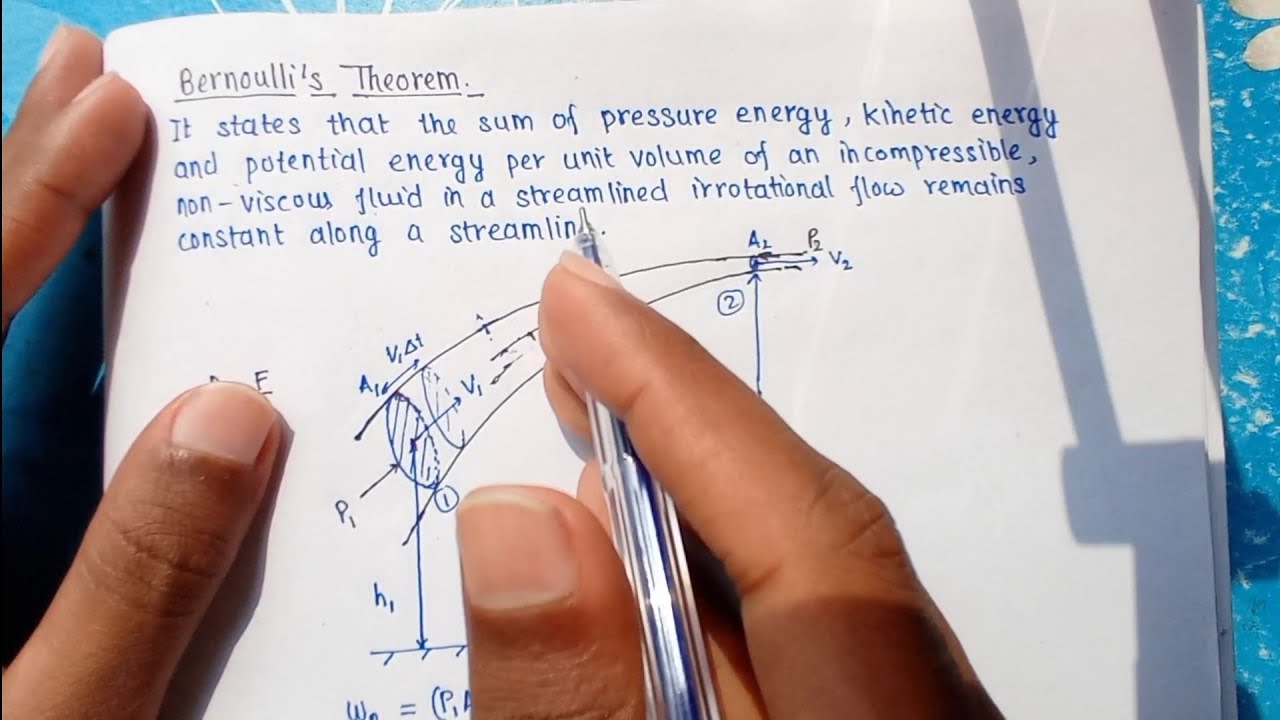 Bernoulli's Theorem.
It states that the sum of pressure energy, kinetic energy
and potential energy per unit volume of an incompressible,
non-viscous fluid in a streamlined irrotational flow remains
constant along a streamlin .
A2 P2
V2
2
V1Δt
A1
V1
P1
1
h1
= (P1A